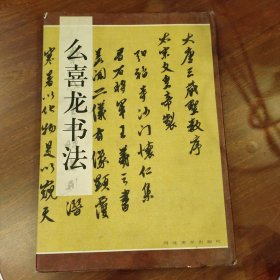 么喜龙书法
大唐三藏圣教序
太宗文皇帝製
弘福寺沙门怀仁集
晋右将军王羲之书
盖闻二仪有像显覆
寒暑以化物是以窥天
潜
河北美术出版社